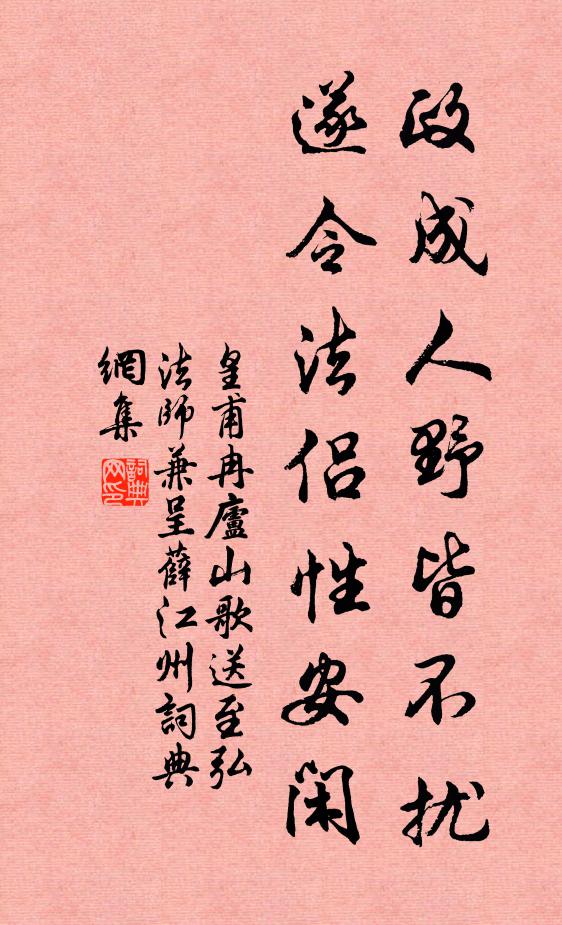 政成人野皆不扰
遂令法侣性安闲
皇甫冉廬山歌送至弘
法師兼呈薛江州詞典
網集
詞典
网印